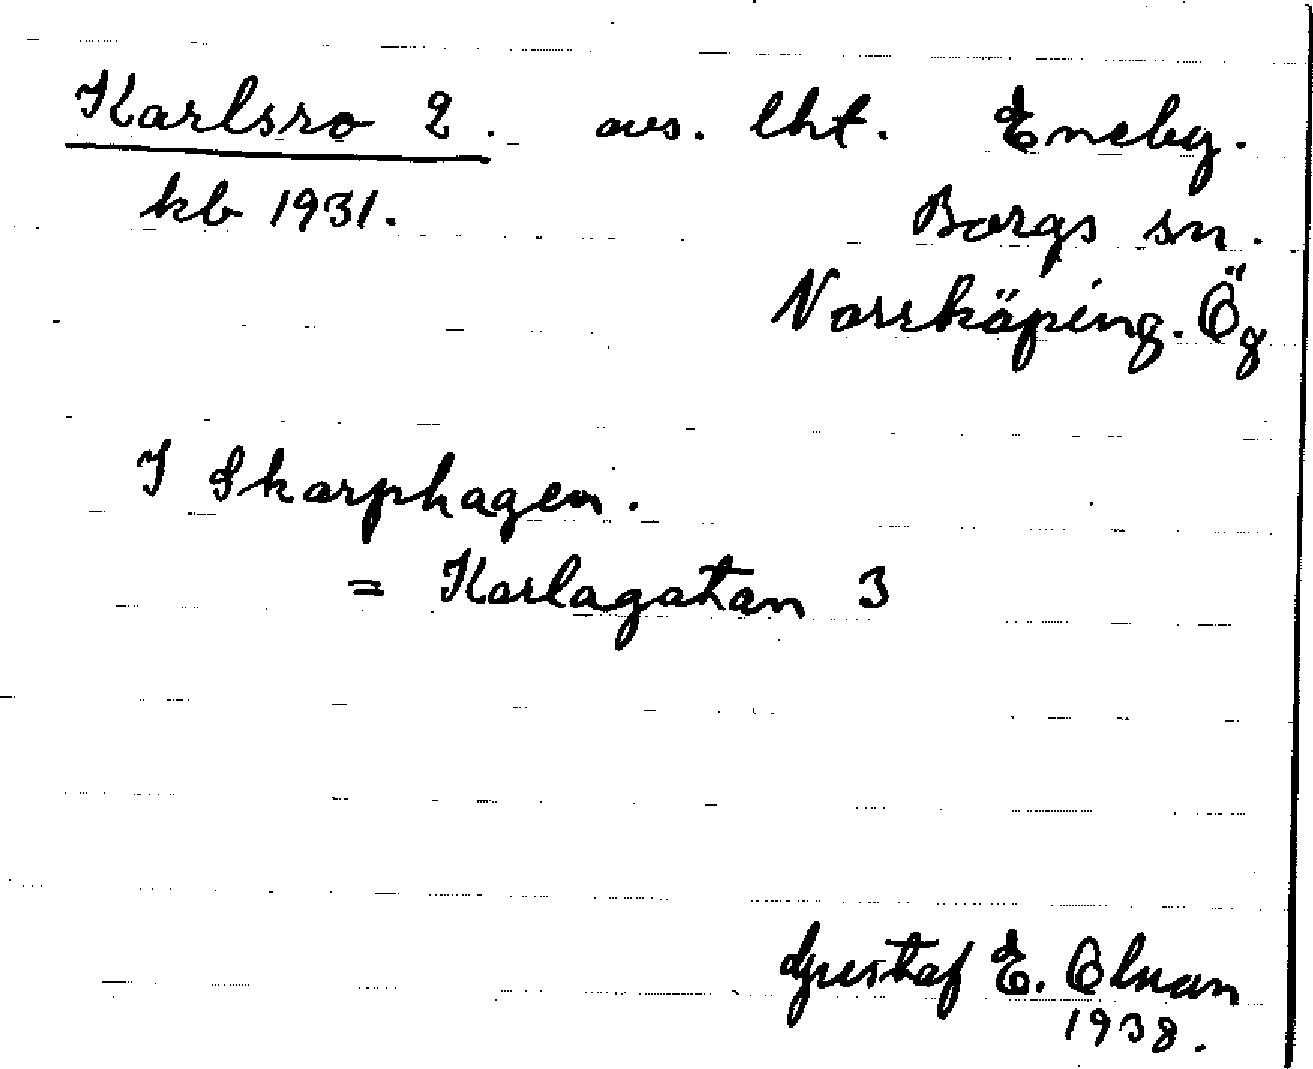 Karlsro 2. avs. lht. Eneby.
kb 1931. Borgs sn.
Norrköping. Ög
I Skarphagen.
= Karlagatan 3
Gustaf E. Olman
1938.